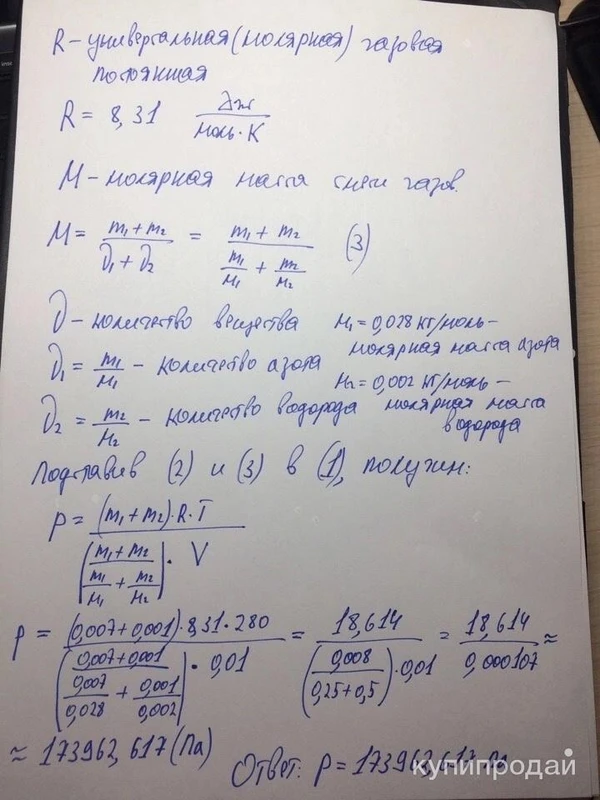 R – универсальная (молярная) газовая
постоянная
R = 8,31 Дж/(моль·К)
M – молярная масса смеси газов.
M = (m₁ + m₂)/(ν₁ + ν₂) = (m₁ + m₂)/(m₁/M₁ + m₂/M₂) (3)
ν – количество вещества M₁ = 0,028 кг/моль –
ν₁ = m₁/M₁ – количество азота молярная масса азота
M₂ = 0,002 кг/моль –
ν₂ = m₂/M₂ – количество водорода молярная масса
водорода
Подставив (2) и (3) в (1), получим:
p = (m₁ + m₂)·R·T / (((m₁ + m₂)/(m₁/M₁ + m₂/M₂))·V)
p = (0,007+0,001)·8,31·280 / (((0,007+0,001)/(0,007/0,028 + 0,001/0,002))·0,01) = 18,614/((0,008/(0,25+0,5))·0,01) = 18,614/0,000107 ≈
≈ 173962,617 (Па)
Ответ: p = 173962,617 Па
купипродай